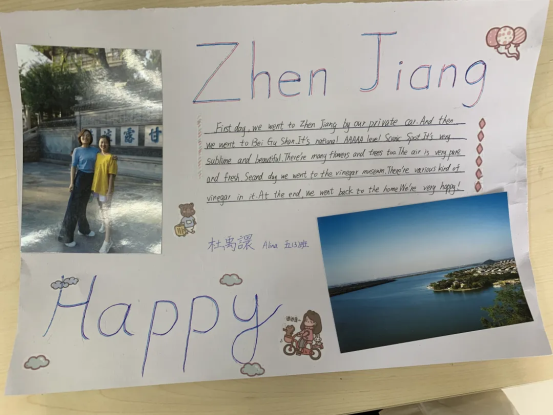 Zhen Jiang
First day, we went to Zhen Jiang by our private car. And then
we went to Bei Gu Shan. It's national AAAAA level Scenic Spot. It's very
sublime and beautiful. There're many flowers and trees too. The air is very pure
and fresh. Second day, we went to the vinegar museum. There're various kind of
vinegar in it. At the end, we went back to the home. We're very happy!
甘露
杜禹讓 Alna
Happy